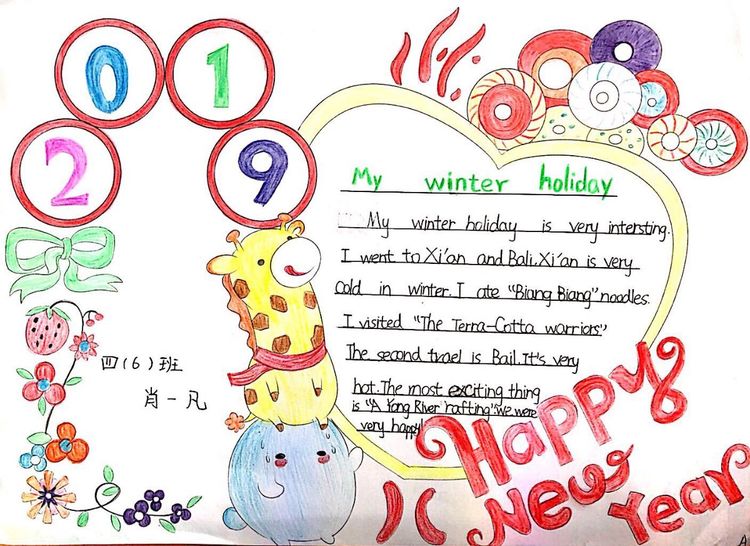 0 1
2 9
My winter holiday
My winter holiday is very intersting.
I went to Xi'an and Bali. Xi'an is very
cold in winter. I ate "Biang Biang" noodles.
I visited "The Terra-Cotta warriors"
The second trael is Bail. It's very
hot. The most exciting thing
is "A Yong River rafting". We were
very happy!
四(6)班
肖一凡
Happy
New Year
A